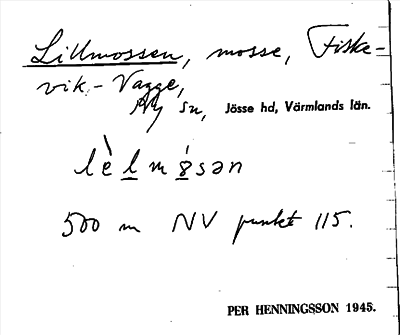 Lillmossen, mosse, Fiske-
vik - Vagge,
Ny sn, Jösse hd, Värmlands län.
lèlmósən
500 m NV punkt 115.
PER HENNINGSSON 1945.